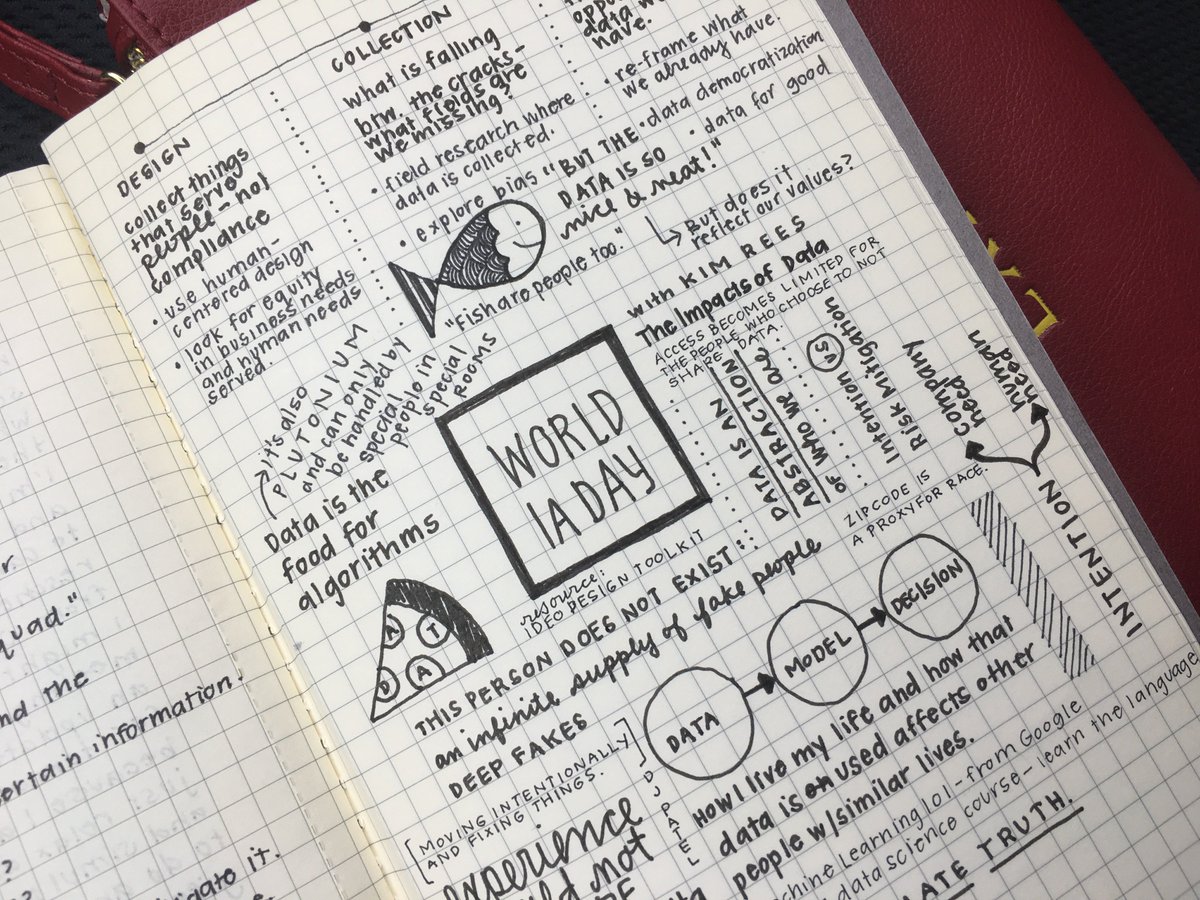 DESIGN
collect things
that serve
people - not
compliance
• use human-
centered design
• look for equity
in business needs
and human needs
served.
COLLECTION
what is falling
btw. the cracks -
what fields are
we missing?
• field research where
data is collected.
• explore bias
data we
have.
• re-frame what
we already have.
• data democratization
• data for good
"BUT THE
DATA IS SO
nice & neat!"
But does it
reflect our values?
"Fish are people too."
it's also
PLUTONIUM
and can only
be handled by
special
people in
special
ROOMS
Data is the
food for
algorithms
D A T A
WORLD
IA DAY
with KIM REES
The Impacts of Data
ACCESS BECOMES LIMITED FOR
THE PEOPLE WHO CHOOSE TO NOT
SHARE DATA.
DATA IS AN
ABSTRACTION
of who we are
Intention vs
Risk Mitigation
company
need
human
need
INTENTION
ZIPCODE IS
A PROXY FOR RACE.
resource:
IDEO DESIGN TOOLKIT
THIS PERSON DOES NOT EXIST:
an infinite supply of fake people
DEEP FAKES
[MOVING INTENTIONALLY
AND FIXING THINGS.]
DJ PATEL
DATA
MODEL
DECISION
How I live my life and how that
data is used affects other
people w/similar lives.
Machine Learning 101 - from Google
data science course - learn the language
TRUTH.
experience
not
quad."
nd the
ertain information.
igate it.